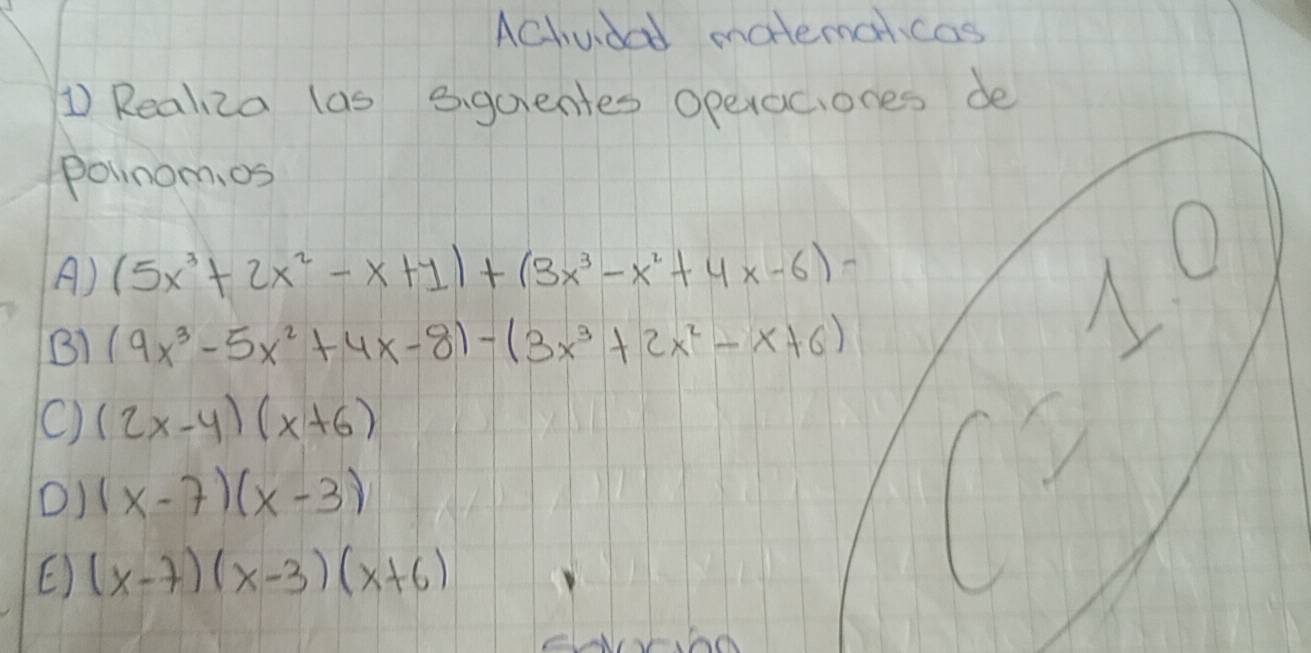 Actividad matematicas
1) Realiza las siguientes operaciones de
polinomios
A) (5x³ + 2x² - x + 1) + (3x³ - x² + 4x - 6) -
B) (9x³ - 5x² + 4x - 8) - (3x³ + 2x² - x + 6)
C) (2x - 4) (x + 6)
D) (x - 7)(x - 3)
E) (x - 7)(x - 3)(x + 6)
solución